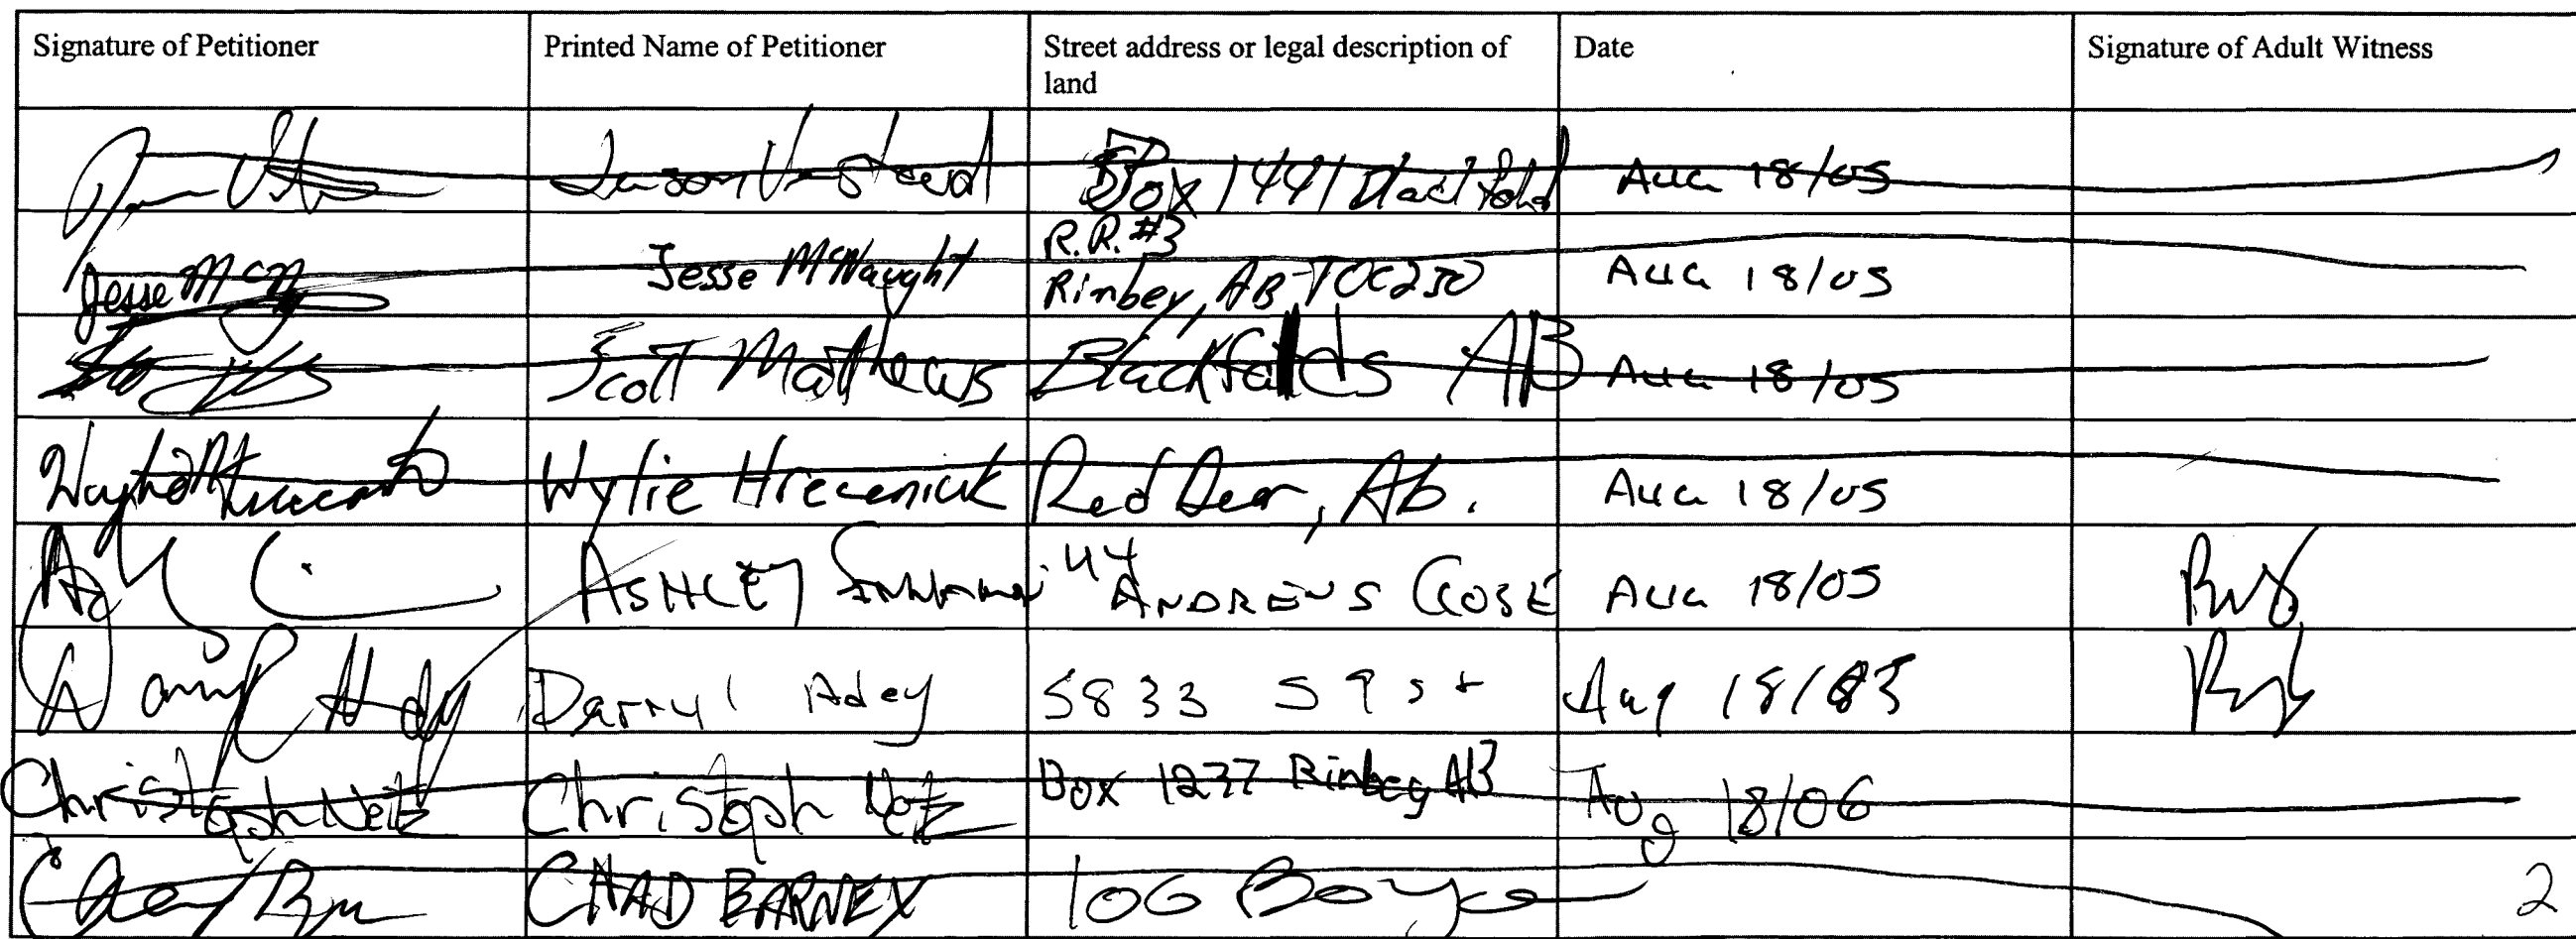 Signature of Petitioner Printed Name of Petitioner Street address or legal description of land Date Signature of Adult Witness
Box 1441 Aug 18/05
Jesse Jesse McNaught R.R. #3 Rimbey, AB T0C2J0 Aug 18/05
Scott Mathews Blackfalds AB Aug 18/05
Wylie Hrecenick Red Deer, Ab. Aug 18/05
ASHLEY 44 ANDREWS CLOSE Aug 18/05
Darryl Adey 5833 59 st Aug 18/05
Christoph Neitz Christoph Box 1237 Rimbey AB Aug 18/06
CHAD BARNEY 106 Boyce
2